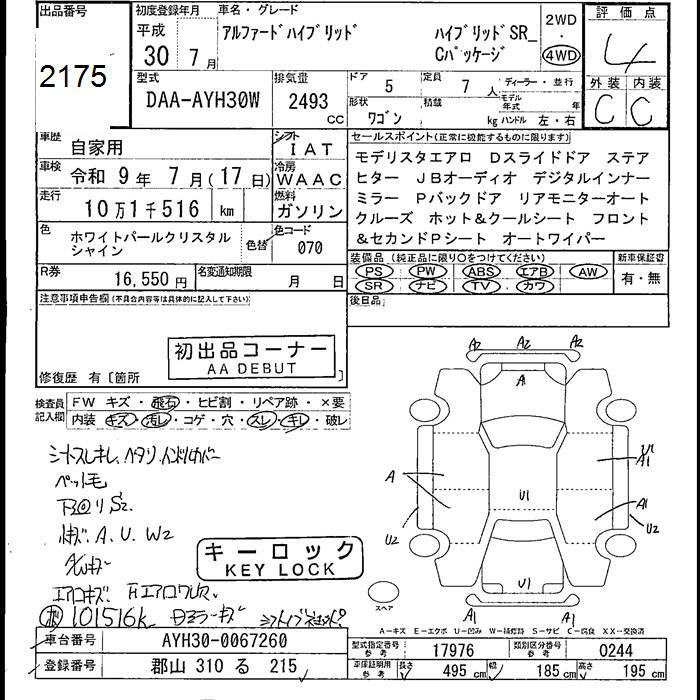 出品番号
2175
初度登録年月
平成
30 年 7 月
車名・グレード
アルファードハイブリッド
ハイブリッドSR_
Cパッケージ
2WD
4WD
評価点
4
外装 内装
C C
型式
DAA-AYH30W
排気量
2493 cc
ドア 5
定員 7 人
ディーラー・並行
形状 ワゴン
積載 kg
モデル年式 年
ハンドル 左・右
車歴
自家用
シフト
IAT
車検
令和 9 年 7 月 (17 日)
冷房
WAAC
走行
10万1千516 km
燃料
ガソリン
色
ホワイトパールクリスタル
シャイン
色替
色コード
070
R券
16,550 円
名変通知期限
月 日
セールスポイント(正常に機能するものに限ります)
モデリスタエアロ Dスライドドア ステア
ヒター JBオーディオ デジタルインナー
ミラー Pバックドア リアモニターオート
クルーズ ホット&クールシート フロント
&セカンドPシート オートワイパー
装備品 (純正品に限り○をつけてください)
PS PW ABS エアB AW
SR ナビ TV カワ
新車保証書
有・無
後日品
注意事項申告欄 (不具合内容等は具体的に記入して下さい)
初出品コーナー
AA DEBUT
修復歴 有 〔箇所 〕
検査員記入欄
FW キズ・飛石・ヒビ割・リペア跡・×要
内装 キズ・汚レ・コゲ・穴・スレ・キレ・破レ
ペット毛
A. U. W2
キーロック
KEY LOCK
エアロキズ
101516k
A2 A2 A2
A1
A
U1
A1
A1
U2
U2
U1
A1 A1
スペア
A-キズ E-エクボ U-凹み W-補修跡 S-サビ C-腐食 XX-交換済
車台番号
AYH30-0067260
登録番号
郡山 310 る 215
型式指定番号 参考
17976
類別区分番号 参考
0244
車庫証明用 参考
長さ 495 cm
幅 185 cm
高さ 195 cm